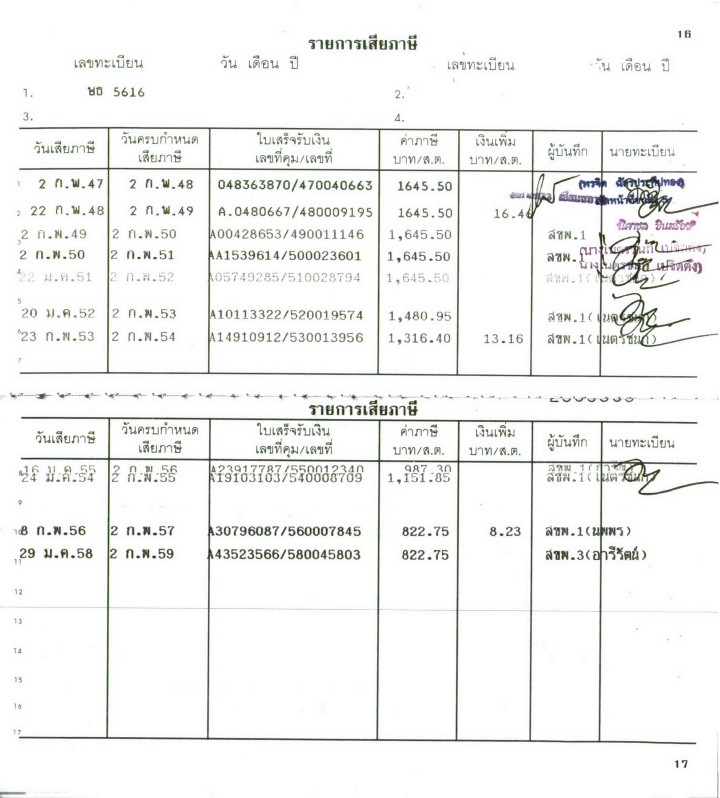 16
รายการเสียภาษี
เลขทะเบียน วัน เดือน ปี เลขทะเบียน วัน เดือน ปี
1. ษธ 5616 2.
3. 4.
วันเสียภาษี วันครบกำหนดเสียภาษี ใบเสร็จรับเงิน เลขที่คุม/เลขที่ ค่าภาษี บาท/ส.ต. เงินเพิ่ม บาท/ส.ต. ผู้บันทึก นายทะเบียน
1 2 ก.พ.47 2 ก.พ.48 048363870/470040663 1645.50
2 22 ก.พ.48 2 ก.พ.49 A.0480667/480009195 1645.50 16.46
2 ก.พ.49 2 ก.พ.50 A00428653/490011146 1,645.50 สขพ.1
3
2 ก.พ.50 2 ก.พ.51 AA1539614/500023601 1,645.50 สขพ.1
4 22 ม.ค.51 2 ก.พ.52 A05749285/510028794 1,645.50 สขพ.1
5
20 ม.ค.52 2 ก.พ.53 A10113322/520019574 1,480.95 สขพ.1(เนตรชนก)
6 23 ก.พ.53 2 ก.พ.54 A14910912/530013956 1,316.40 13.16 สขพ.1(เนตรชนก)
7
รายการเสียภาษี
วันเสียภาษี วันครบกำหนดเสียภาษี ใบเสร็จรับเงิน เลขที่คุม/เลขที่ ค่าภาษี บาท/ส.ต. เงินเพิ่ม บาท/ส.ต. ผู้บันทึก นายทะเบียน
16 ม.ค.55 2 ก.พ.56 A23917787/550012340 987.30 สขพ.1
8 24 ม.ค.54 2 ก.พ.55 A19103103/540008709 1,151.85 สขพ.1(เนตรชนก)
9
10 8 ก.พ.56 2 ก.พ.57 A30796087/560007845 822.75 8.23 สขพ.1(นพพร)
29 ม.ค.58 2 ก.พ.59 A43523566/580045803 822.75 สขพ.3(อารีวัตน์)
11
12
13
14
15
16
17
17